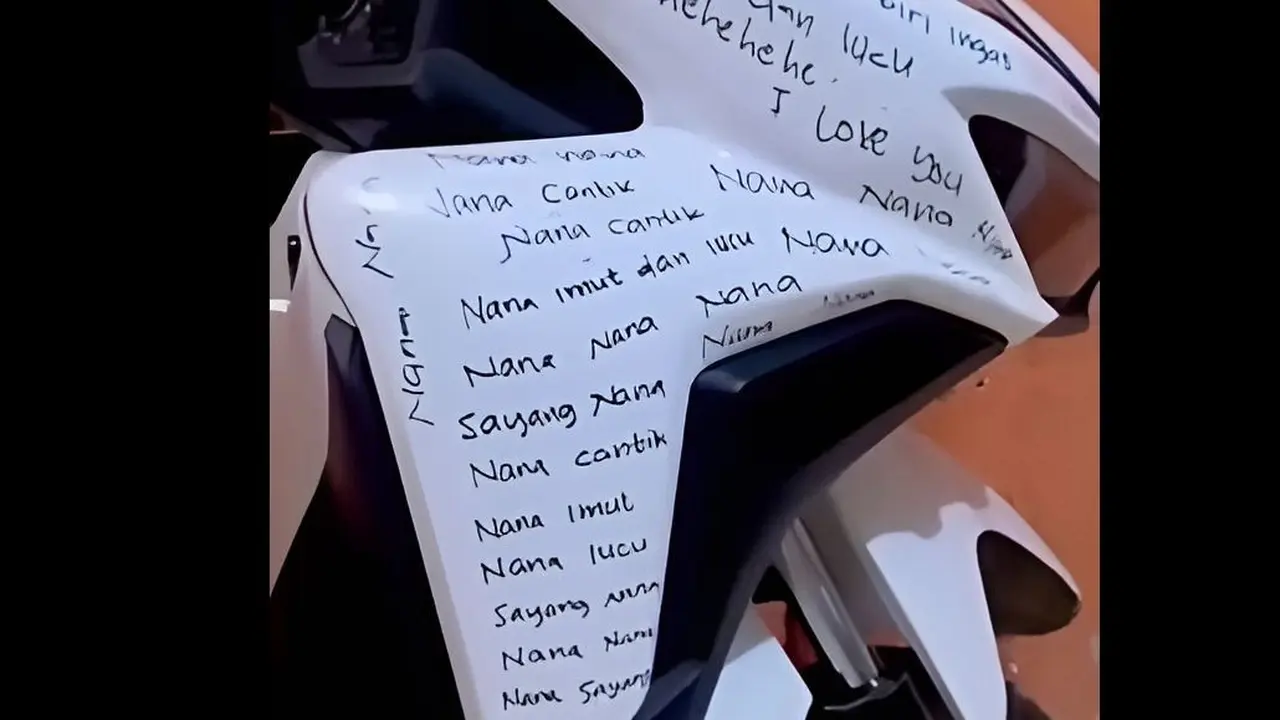 dan lucu
hehehehe.
I love you
Nana nana
Nana Cantik
Nana Cantik
Nana Nana
Nana imut dan lucu Nana
Nana Nana Nana
Sayang Nana
Nana cantik
Nana imut
Nana lucu
Sayang Nana
Nana Nana
Nana Sayang
Nana